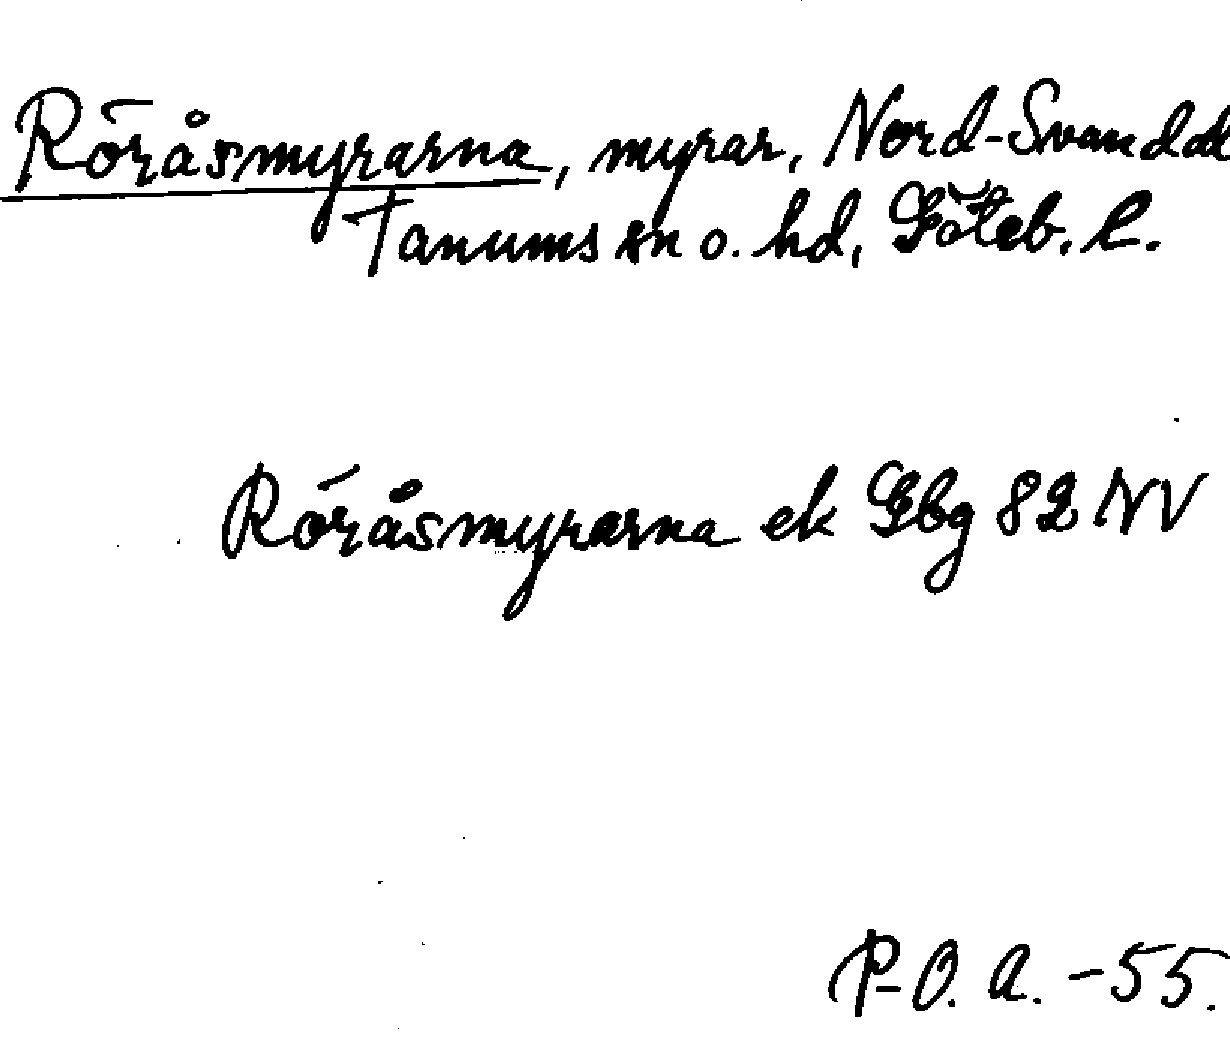 Röråsmyrarna, myrar, Nord-Svandal
Tanums sn o. hd, Göteb. l.
Röråsmyrarna ek Gbg 82 NV
P-O. A. -55.